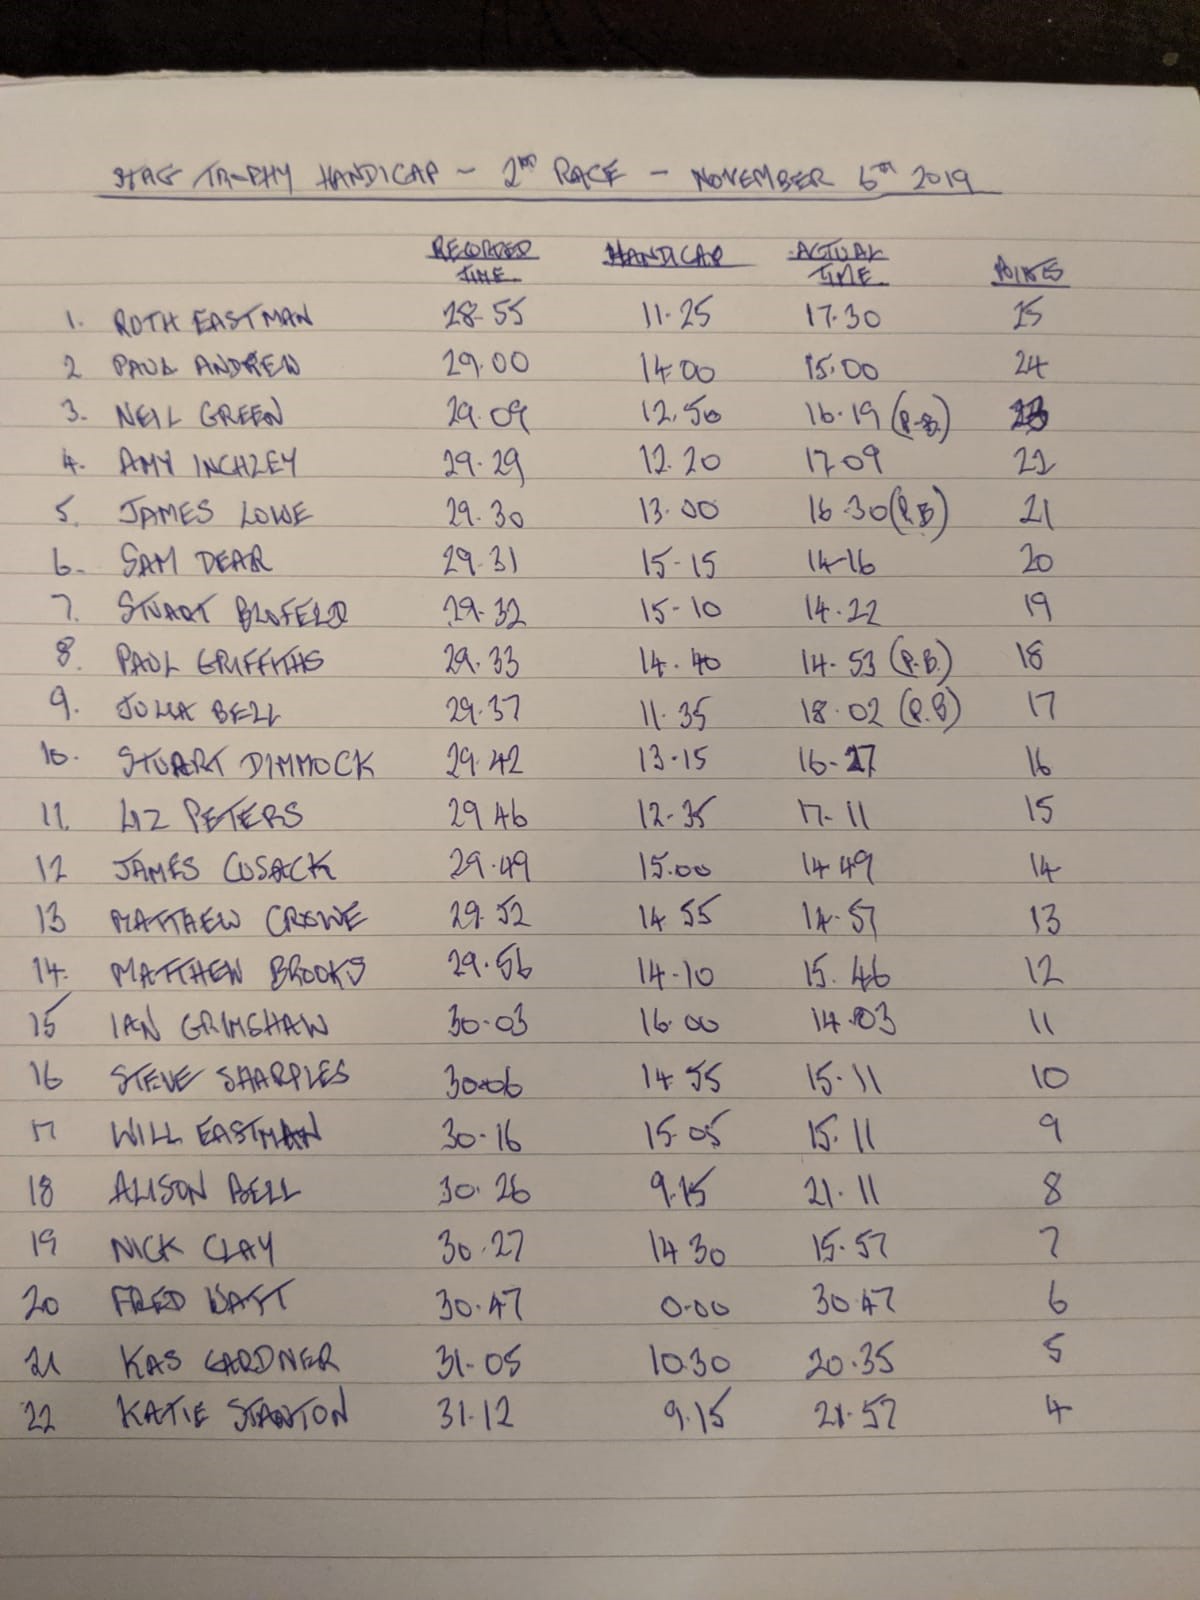 STAG TROPHY HANDICAP - 2ND RACE - NOVEMBER 6TH 2019
RECORDED TIME HANDICAP ACTUAL TIME POINTS
1. RUTH EASTMAN 28.55 11.25 17.30 25
2 PAUL ANDREW 29.00 14.00 15.00 24
3. NEIL GREEN 29.09 12.50 16.19 (P.B.) 23
4. AMY INCHLEY 29.29 12.20 17 09 22
5. JAMES LOWE 29.30 13.00 16.30 (P.B) 21
6. SAM DEAR 29.31 15-15 14-16 20
7. STUART BLOFELD 29.32 15-10 14.22 19
8. PAUL GRIFFITHS 29.33 14.40 14.53 (P.B.) 18
9. JULIA BELL 29.37 11.35 18.02 (P.B) 17
10. STUART DIMMOCK 29.42 13.15 16-27 16
11. LIZ PETERS 29 46 12-35 17.11 15
12 JAMES CUSACK 29.49 15.00 14 49 14
13 MATTHEW CROWE 29.52 14 55 14.57 13
14. MATTHEW BROOKS 29.56 14-10 15.46 12
15 IAN GRIMSHAW 30.03 16.00 14.03 11
16 STEVE SHARPLES 30.06 14 55 15.11 10
17 WILL EASTMAN 30.16 15.05 15.11 9
18 ALISON BELL 30.26 9.15 21.11 8
19 NICK CLAY 30.27 14 30 15.57 7
20 FRED 30.47 0.00 30 47 6
21 KAS GARDNER 31.05 10.30 20.35 5
22 KATIE STANTON 31.12 9.15 21.57 4